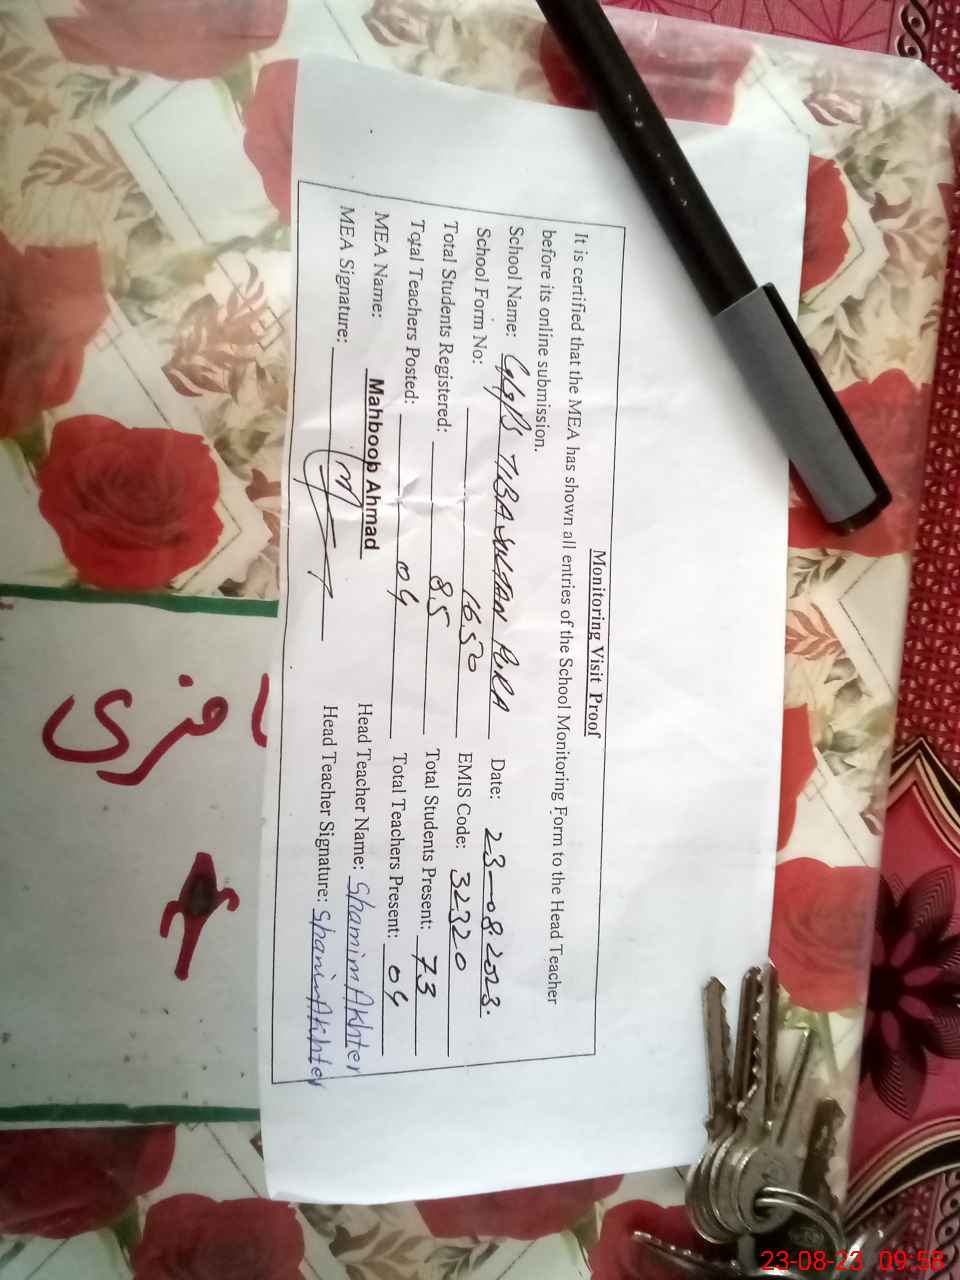 Monitoring Visit Proof
It is certified that the MEA has shown all entries of the School Monitoring Form to the Head Teacher
before its online submission.
School Name: GGPS TIBA SULTAN PURA Date: 23-08.2023.
School Form No: 1650 EMIS Code: 32320
Total Students Registered: 85 Total Students Present: 73
Total Teachers Posted: 04 Total Teachers Present: 04
MEA Name: Mahboob Ahmad Head Teacher Name: Shamim Akhter
MEA Signature: Head Teacher Signature: Shamim Akhter
23-08-23 09:58